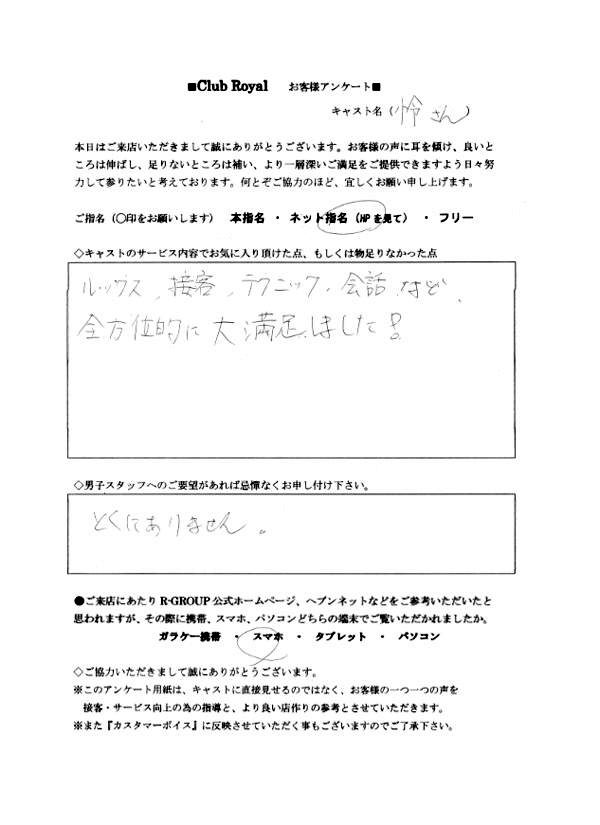 ■Club Royal お客様アンケート■
キャスト名（怜さん）
本日はご来店いただきまして誠にありがとうございます。お客様の声に耳を傾け、良いと
ころは伸ばし、足りないところは補い、より一層深いご満足をご提供できますよう日々努
力して参りたいと考えております。何とぞご協力のほど、宜しくお願い申し上げます。
ご指名（〇印をお願いします） 本指名 ・ ネット指名（HPを見て） ・ フリー
◇キャストのサービス内容でお気に入り頂けた点、もしくは物足りなかった点
ルックス、接客、テクニック、会話など、
全方位的に大満足しました!
◇男子スタッフへのご要望があれば忌憚なくお申し付け下さい。
とくにありません。
●ご来店にあたり R-GROUP 公式ホームページ、ヘブンネットなどをご参考いただいたと
思われますが、その際に携帯、スマホ、パソコンどちらの端末でご覧いただかれましたか。
ガラケー携帯 ・ スマホ ・ タブレット ・ パソコン
◇ご協力いただきまして誠にありがとうございます。
※このアンケート用紙は、キャストに直接見せるのではなく、お客様の一つ一つの声を
接客・サービス向上の為の指導と、より良い店作りの参考とさせていただきます。
※また『カスタマーボイス』に反映させていただく事もございますのでご了承下さい。